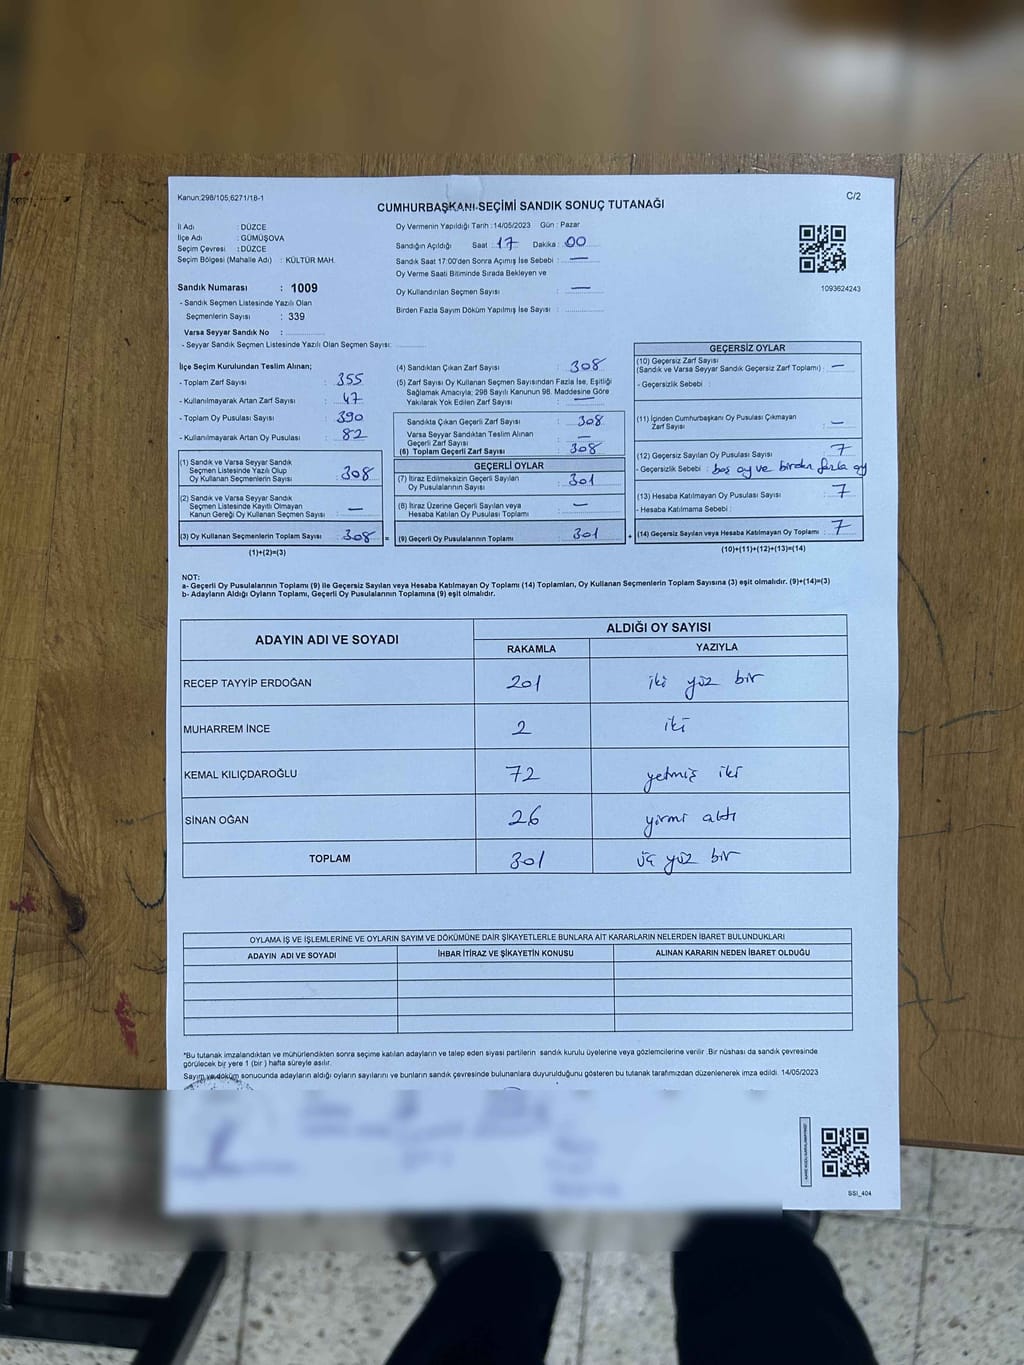 Kanun;298/105;6271/18-1
C/2
CUMHURBAŞKANI SEÇİMİ SANDIK SONUÇ TUTANAĞI
İl Adı : DÜZCE
İlçe Adı : GÜMÜŞOVA
Seçim Çevresi : DÜZCE
Seçim Bölgesi (Mahalle Adı) : KÜLTÜR MAH.
Sandık Numarası : 1009
- Sandık Seçmen Listesinde Yazılı Olan
Seçmenlerin Sayısı : 339
Varsa Seyyar Sandık No :
- Seyyar Sandık Seçmen Listesinde Yazılı Olan Seçmen Sayısı:
Oy Vermenin Yapıldığı Tarih : 14/05/2023 Gün : Pazar
Sandığın Açıldığı Saat : 17 Dakika : 00
Sandık Saat 17:00'den Sonra Açımış İse Sebebi : —
Oy Verme Saati Bitiminde Sırada Bekleyen ve
Oy Kullandırılan Seçmen Sayısı : —
Birden Fazla Sayım Döküm Yapılmış İse Sayısı :
1093624243
İlçe Seçim Kurulundan Teslim Alınan;
- Toplam Zarf Sayısı : 355
- Kullanılmayarak Artan Zarf Sayısı : 47
- Toplam Oy Pusulası Sayısı : 390
- Kullanılmayarak Artan Oy Pusulası : 82
(1) Sandık ve Varsa Seyyar Sandık
Seçmen Listesinde Yazılı Olup
Oy Kullanan Seçmenlerin Sayısı : 308
(2) Sandık ve Varsa Seyyar Sandık
Seçmen Listesinde Kayıtlı Olmayan
Kanun Gereği Oy Kullanan Seçmen Sayısı : —
(3) Oy Kullanan Seçmenlerin Toplam Sayısı : 308 =
(1)+(2)=(3)
(4) Sandıktan Çıkan Zarf Sayısı : 308
(5) Zarf Sayısı Oy Kullanan Seçmen Sayısından Fazla İse, Eşitliği
Sağlamak Amacıyla; 298 Sayılı Kanunun 98. Maddesine Göre
Yakılarak Yok Edilen Zarf Sayısı : —
Sandıkta Çıkan Geçerli Zarf Sayısı : 308
Varsa Seyyar Sandıktan Teslim Alınan
Geçerli Zarf Sayısı : —
(6) Toplam Geçerli Zarf Sayısı : 308
GEÇERLİ OYLAR
(7) İtiraz Edilmeksizin Geçerli Sayılan
Oy Pusulalarının Sayısı : 301
(8) İtiraz Üzerine Geçerli Sayılan veya
Hesaba Katılan Oy Pusulası Toplamı : —
(9) Geçerli Oy Pusulalarının Toplamı : 301 +
GEÇERSİZ OYLAR
(10) Geçersiz Zarf Sayısı
(Sandık ve Varsa Seyyar Sandık Geçersiz Zarf Toplamı) : —
- Geçersizlik Sebebi :
(11) İçinden Cumhurbaşkanı Oy Pusulası Çıkmayan
Zarf Sayısı : —
(12) Geçersiz Sayılan Oy Pusulası Sayısı : 7
- Geçersizlik Sebebi : boş oy ve birden fazla oy
(13) Hesaba Katılmayan Oy Pusulası Sayısı : 7
- Hesaba Katılmama Sebebi :
(14) Geçersiz Sayılan veya Hesaba Katılmayan Oy Toplamı : 7
(10)+(11)+(12)+(13)=(14)
NOT:
a- Geçerli Oy Pusulalarının Toplamı (9) ile Geçersiz Sayılan veya Hesaba Katılmayan Oy Toplamı (14) Toplamları, Oy Kullanan Seçmenlerin Toplam Sayısına (3) eşit olmalıdır. (9)+(14)=(3)
b- Adayların Aldığı Oyların Toplamı, Geçerli Oy Pusulalarının Toplamına (9) eşit olmalıdır.
ADAYIN ADI VE SOYADI
ALDIĞI OY SAYISI
RAKAMLA YAZIYLA
RECEP TAYYİP ERDOĞAN 201 iki yüz bir
MUHARREM İNCE 2 iki
KEMAL KILIÇDAROĞLU 72 yetmiş iki
SİNAN OĞAN 26 yirmi altı
TOPLAM 301 üç yüz bir
OYLAMA İŞ VE İŞLEMLERİNE VE OYLARIN SAYIM VE DÖKÜMÜNE DAİR ŞİKAYETLERLE BUNLARA AİT KARARLARIN NELERDEN İBARET BULUNDUKLARI
ADAYIN ADI VE SOYADI İHBAR İTİRAZ VE ŞİKAYETİN KONUSU ALINAN KARARIN NEDEN İBARET OLDUĞU
*Bu tutanak imzalandıktan ve mühürlendikten sonra seçime katılan adayların ve talep eden siyasi partilerin sandık kurulu üyelerine veya gözlemcilerine verilir .Bir nüshası da sandık çevresinde
görülecek bir yere 1 (bir ) hafta süreyle asılır.
Sayım ve döküm sonucunda adayların aldığı oyların sayılarını ve bunların sandık çevresinde bulunanlara duyurulduğunu gösteren bu tutanak tarafımızdan düzenlenerek imza edildi. 14/05/2023
SSI_404